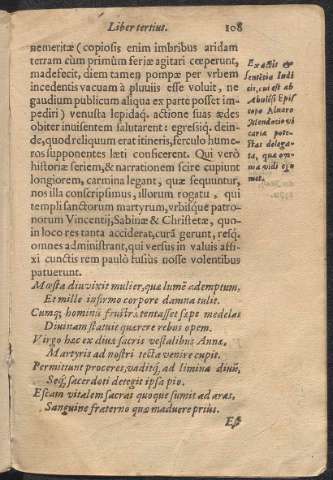 Liber tertius. 108
nemeritæ (copiosis enim imbribus aridam
terram cùm primùm feriæ agitari cœperunt,
madefecit, diem tamen pompæ per vrbem
incedentis vacuam à pluuiis esse voluit, ne
gaudium publicum aliqua ex parte posset im-
pediri) venusta lepidaq́. actione suas ædes
obiter inuisentem salutarent: egressiq́. dein-
de, quod reliquum erat itineris, ferculo hume-
ros supponentes læti conficerent. Qui verò
historiæ seriem, & narrationem scire cupiunt
longiorem, carmina legant, quæ sequuntur,
nos illa conscripsimus, illorum rogatu, qui
templi sanctorum martyrum, vrbisque patro-
norum Vincentij, Sabinæ & Christetæ, quo-
in loco res tanta acciderat, curã gerunt, resq́.
omnes administrant, qui versus in valuis affi-
xi cunctis rem paulò fusiùs nosse volentibus
patuerunt.
Mœsta diu vixit mulier, quæ lumẽ ademptum,
Et mille infirmo corpore damna tulit.
Cumq́; hominũ frustrà tentasset sæpe medelas
Diuinam statuit quærere rebus opem.
Virgo hæc ex diua sacris vestalibus Anna,
Martyris ad nostri tecta venire cupit.
Permittunt proceres, vaditq́; ad limina diuũ,
Seq́; sacerdoti detegit ipsa pio.
Escam vitalem sacras quoque sumit ad aras,
Sanguine fraterno quæ maduere prius.
Et
Ex actis &
sentẽtia Iudi
cis, cui est ab
Abulẽsi Epis
copo Aluaro
Mendotio vi
caria potes-
tas delega-
ta, quæ om-
nia vidi ego
met.